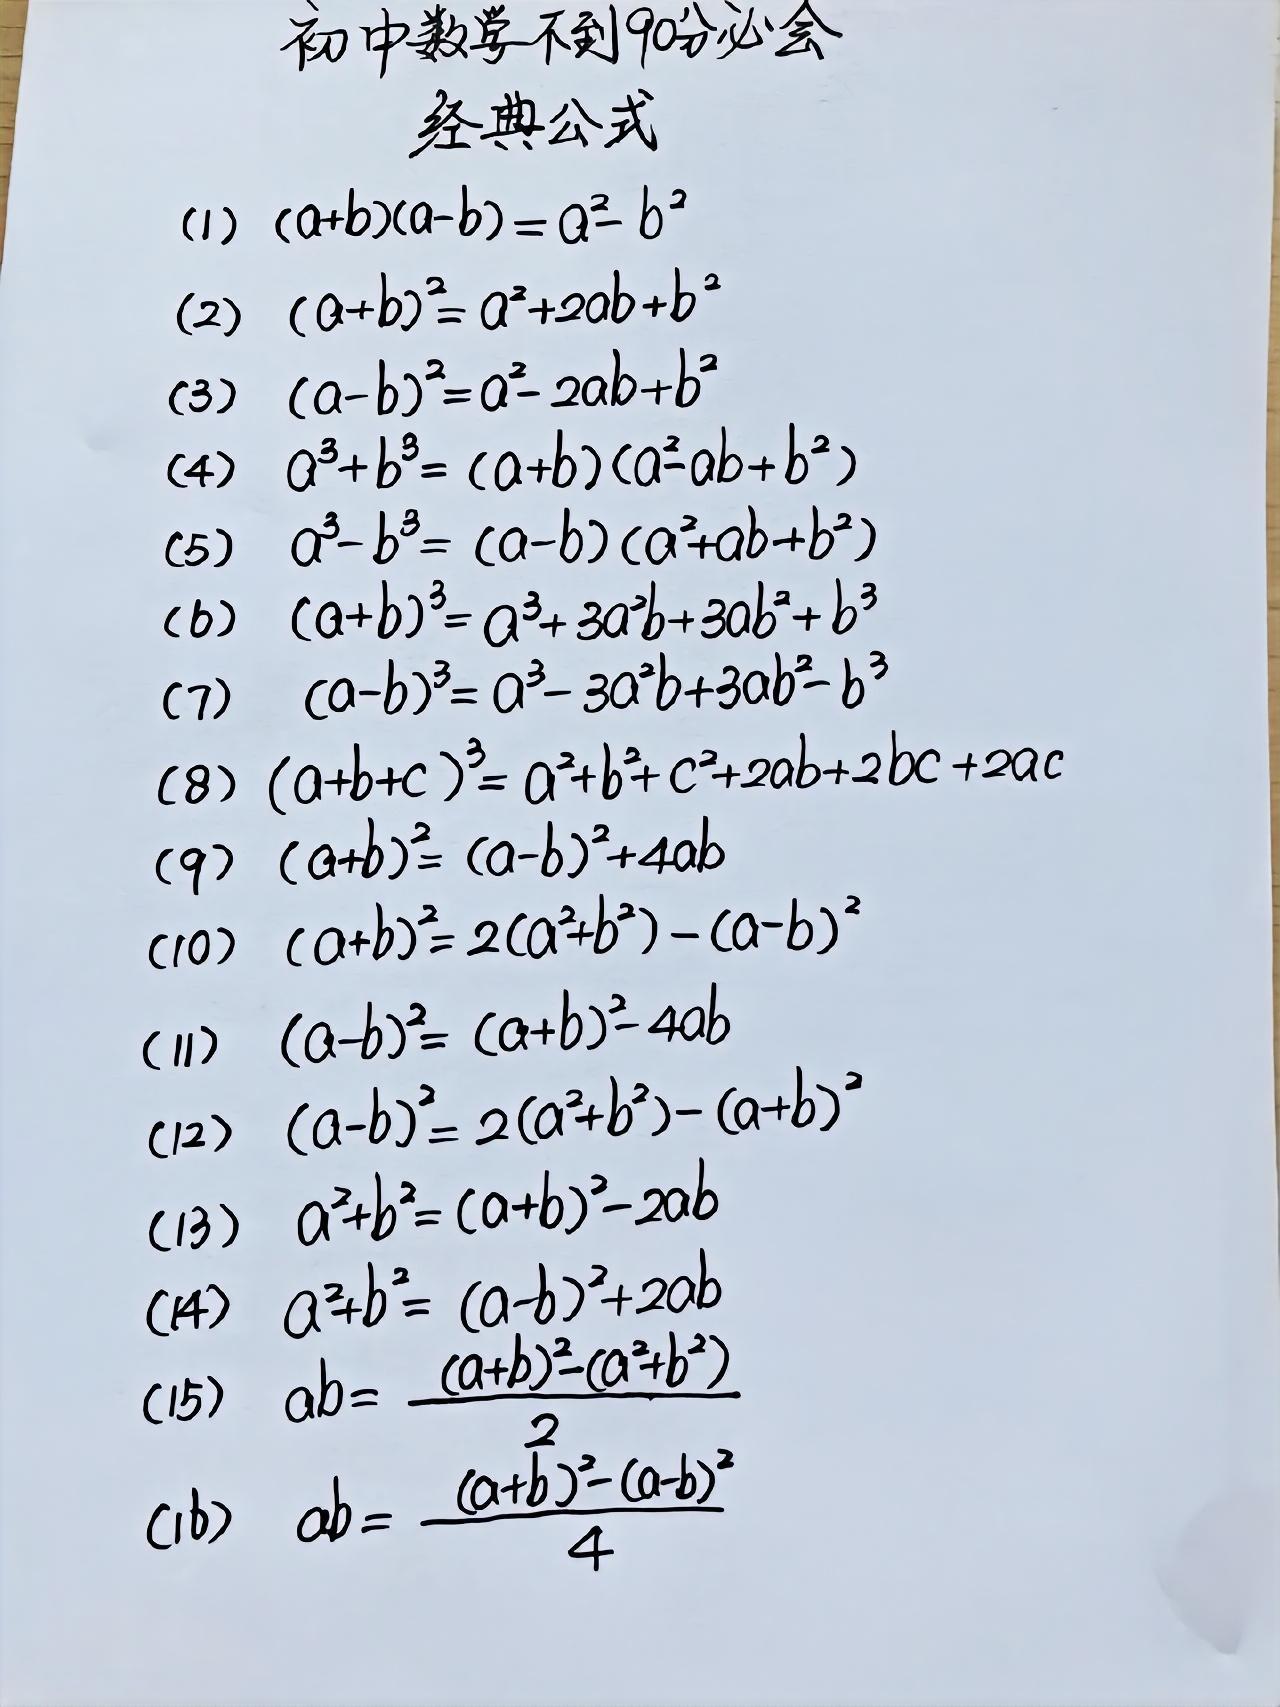 初中数学不到90分必会
经典公式
(1) (a+b)(a-b)=a²-b²
(2) (a+b)²=a²+2ab+b²
(3) (a-b)²=a²-2ab+b²
(4) a³+b³=(a+b)(a²-ab+b²)
(5) a³-b³=(a-b)(a²+ab+b²)
(6) (a+b)³=a³+3a²b+3ab²+b³
(7) (a-b)³=a³-3a²b+3ab²-b³
(8) (a+b+c)³=a²+b²+c²+2ab+2bc+2ac
(9) (a+b)²=(a-b)²+4ab
(10) (a+b)²=2(a²+b²)-(a-b)²
(11) (a-b)²=(a+b)²-4ab
(12) (a-b)²=2(a²+b²)-(a+b)²
(13) a²+b²=(a+b)²-2ab
(14) a²+b²=(a-b)²+2ab
(15) ab=((a+b)²-(a²+b²))/2
(16) ab=((a+b)²-(a-b)²)/4